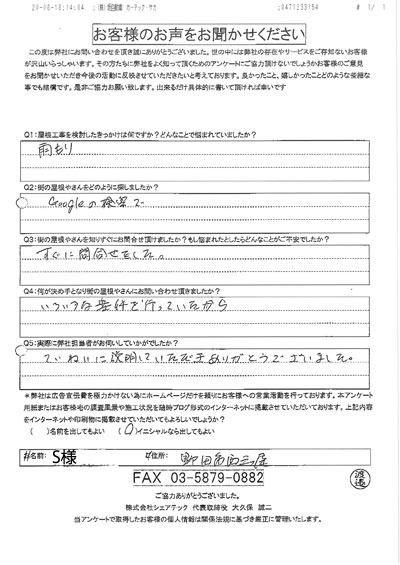 20-08-18;14:04 ; ;0471233154 # 1/ 1
お客様のお声をお聞かせください
この度は弊社にお問い合わせを頂き誠にありがとうございました。世の中には弊社の存在やサービスをご存知ないお客様
が沢山いらっしゃいます。その方たちに弊社をよく知って頂くためのアンケートにご協力頂けないでしょうかお客様のご意見
をお聞かせいただき今後の活動に反映させていきたいと考えております。良かったこと、嬉しかったことどのような些細な
事でも結構です。是非ご協力お願い致します。出来るだけ具体的に書いて頂ければ幸いです
Q1:屋根工事を検討したきっかけは何ですか?どんなことで悩まれていましたか?
雨もり
Q2:街の屋根やさんをどのように探しましたか?
Googleの検索で
Q3:街の屋根やさんを知りすぐにお問合せ頂けましたか?もし悩まれたとしたらどんなことがご不安でしたか?
すぐに問合せをした。
Q4:何が決め手となり街の屋根やさんにお問い合わせ頂きましたか?
いろいろな条件を行っていたから
Q5:実際に弊社担当者がお伺いしていかがでしたか?
ていねいに説明していただきありがとうございました。
*弊社は広告宣伝費を極力かけない為にホームページだけを頼りにお客様への営業活動を行っております。本アンケート
用紙またはお客様宅の調査風景や施工状況を随時ブログ形式のインターネットに掲載させていただいております。上記内容
をインターネットや印刷物に掲載させていただいてもよろしいでしょうか?
( )名前を出してもよい (○)イニシャルなら出してもよい
お名前: S様 ご住所: 野田市西三ヶ尾
FAX 03-5879-0882
渡邊
ご協力ありがとうございました。
株式会社シェアテック 代表取締役 大久保 誠二
当アンケートで取得したお客様の個人情報は関係法規に基づき厳正に管理いたします。